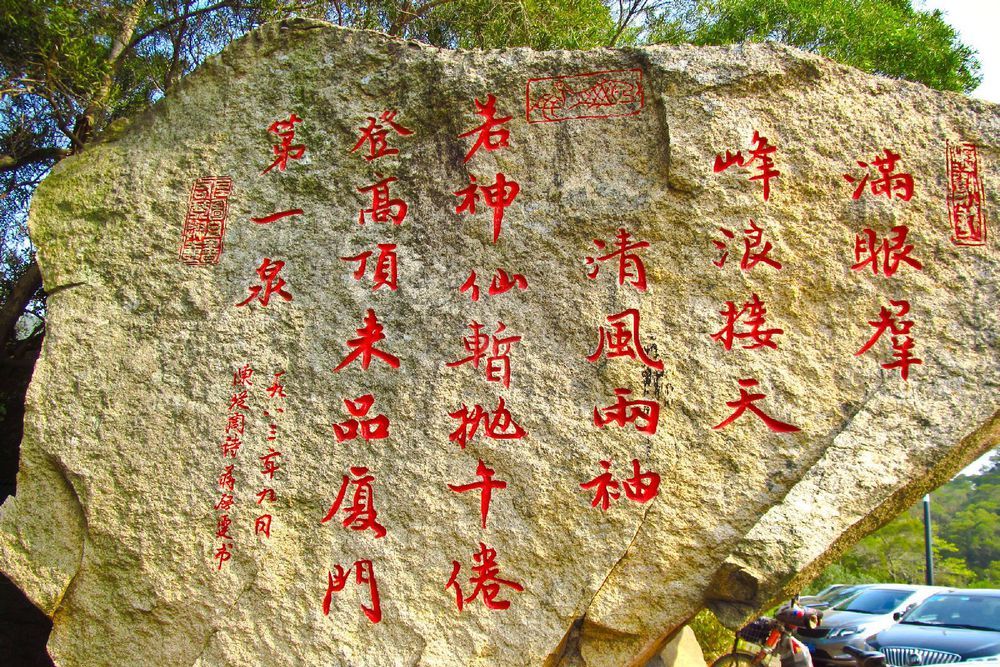 滿眼羣
峰浪接天
清風兩袖
若神仙暫抛午倦
登高頂來品廈門
第一泉
一九八三年九月